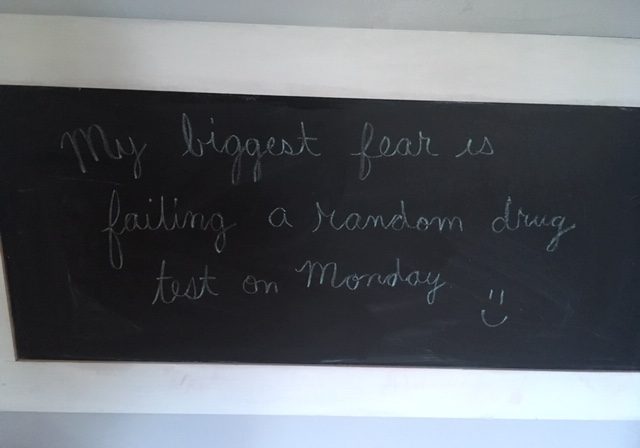 My biggest fear is
failing a random drug
test on Monday